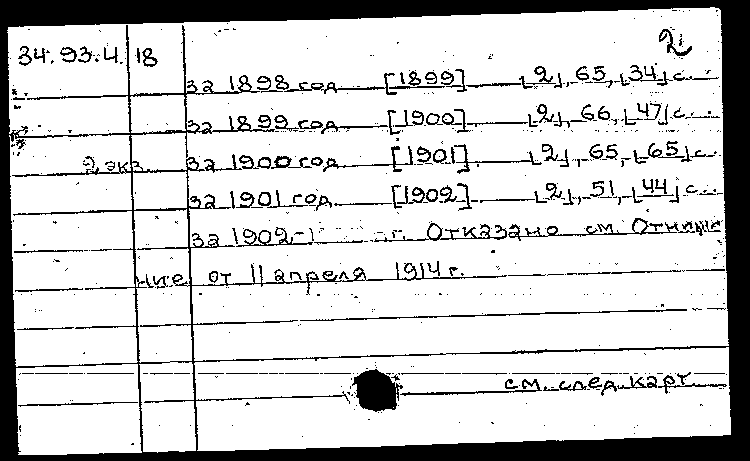 2
34.93.4.18
за 1898 год [1899] [2], 65, [34] с.
за 1899 год [1900] [2], 66, [47] с.
2 экз. за 1900 год [1901] [2], 65, [65] с.
за 1901 год [1902] [2], 51, [44] с.
за 1902- г. Отказано см.
ние от 11 апреля 1914 г.
см. след. карт.